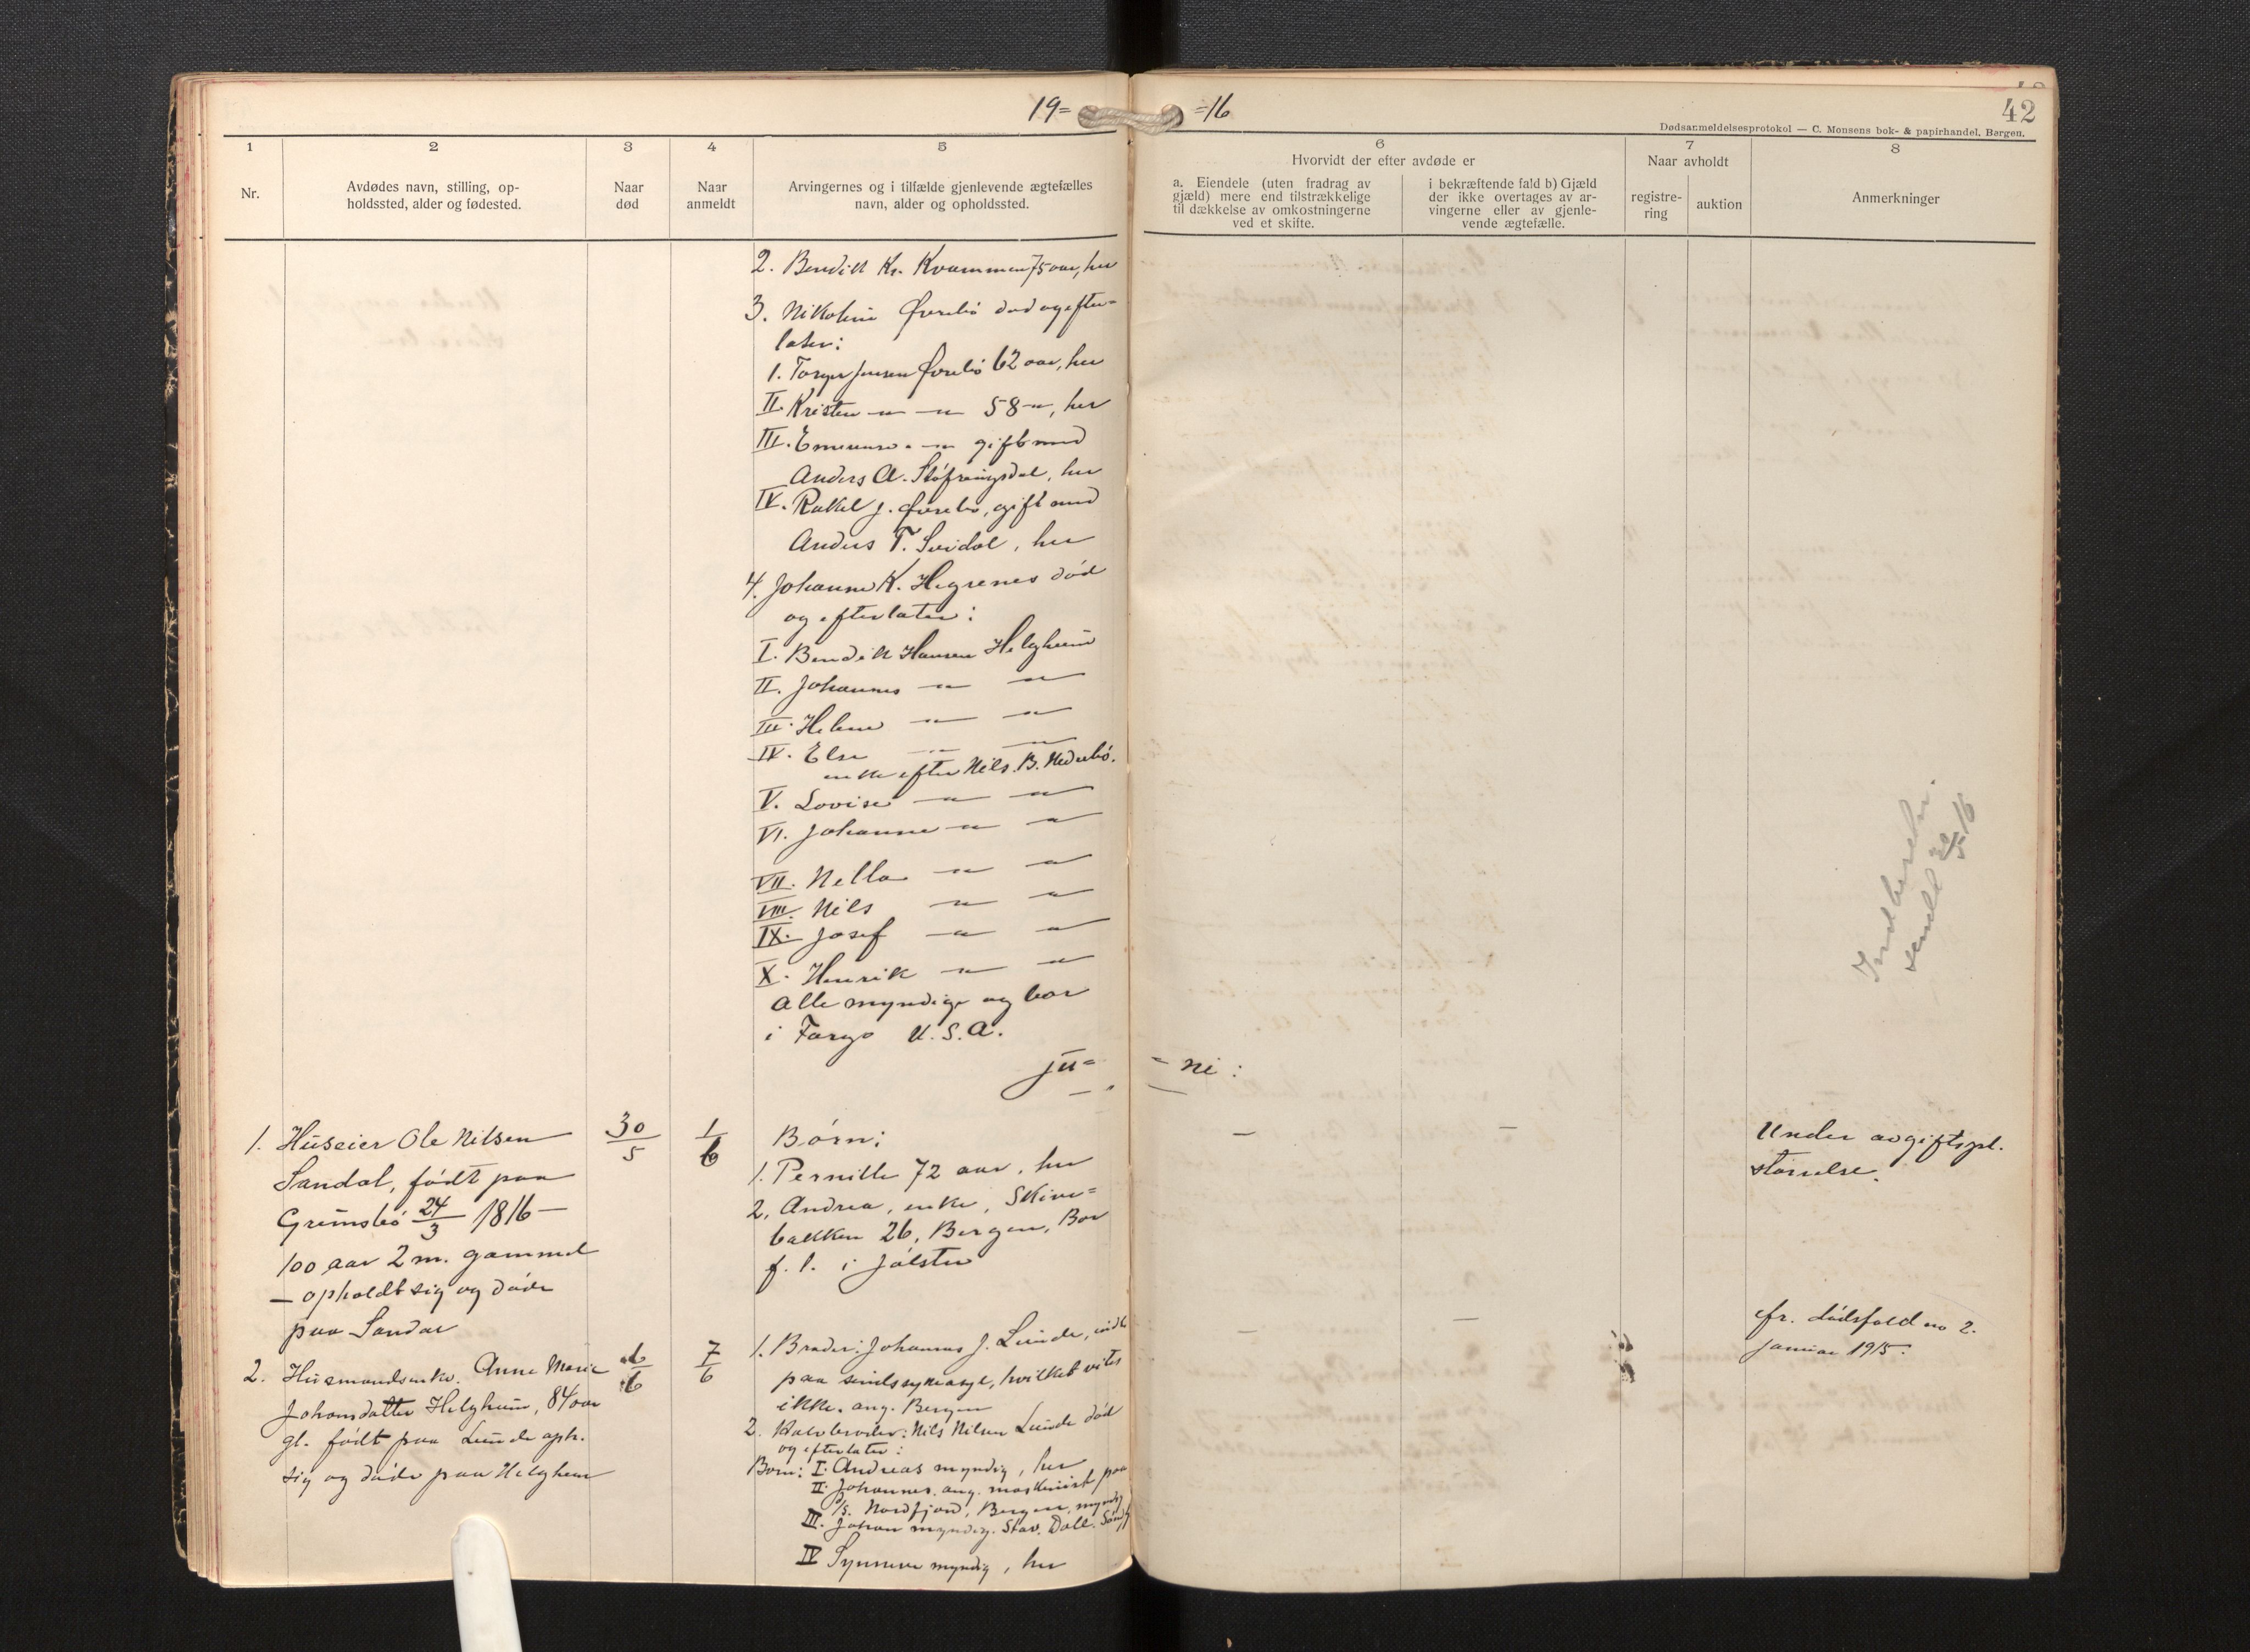 19= =16
42
Dødsanmeldelsesprotokol — C. Monsens bok- & papirhandel, Bergen.
1
2
3
4
5
6
7
8
Nr.
Avdødes navn, stilling, op-
holdssted, alder og fødested.
Naar
død
Naar
anmeldt
Arvingernes og i tilfælde gjenlevende ægtefælles
navn, alder og opholdssted.
Hvorvidt der efter avdøde er
a. Eiendele (uten fradrag av
gjæld) mere end tilstrækkelige
til dækkelse av omkostningerne
ved et skifte.
i bekræftende fald b) Gjæld
der ikke overtages av ar-
vingerne eller av gjenle-
vende ægtefælle.
Naar avholdt
registre-
ring
auktion
Anmerkninger
2. Bendik Kr. Kvammen 75 aar, her
3. Nikoline Øvrebø død og efter=
later:
1. Torger Jensen Øvrebø 62 aar, her
II. Kristen —"— —"— 58 —"—, her
III. " —"— gift med
Anders A. Støfringsdal, her
IV. Rakel J. Øvrebø, gift med
Anders T. Svidal, her
4. Johanne K. Hegrenes død
og efterlater:
I. Bendik Hansen Helgheim
II. Johannes —"— —"—
III. Helene —"— —"—
IV. Else —"— —"—
enke efter Nils B. Nedrebø.
V. Lovise —"— —"—
VI. Johanne —"— —"—
VII. Nella —"— —"—
VIII. Nils —"— —"—
IX. Josef —"— —"—
X. Henrik —"— —"—
alle myndige og bor
i Fargo U.S.A.
Indberetn.
sendt 30/5 16
Ju= =ni:
1. Huseier Ole Nilsen
Sandal, født paa
Grimsbø 24/3 1816 —
100 aar 2 m. gammel
— opholdt sig og døde
paa Sandal
30/5
1/6
Børn:
1. Pernille 72 aar, her
2. Andrea, enke, Skive=
bakken 26, Bergen, Bor
f. t. i Jølster
—
—
Under avgiftspl.
størrelse.
2. Husmandsenke Anne Marie
Johansdatter Helgheim, 84 aar
gl. født paa Lunde oph.
sig og døde paa Helgheim
6/6
7/6
1. Broder: Johannes J. Lunde, indl.
paa sindssykeasyl, hvilket vites
ikke. ang. Bergen
2. Halvbroder: Nils Nilsen Lunde død
og efterlater:
Børn: I. Andreas myndig, her
II. Johannes, ang. maskinist paa
D/S. Nordfjord, Bergen, myndig
III. Johan myndig. Stav. Dale. Søndfj
IV Synneve myndig, her
—
—
cfr. dødsfald no 2.
januar 1915.